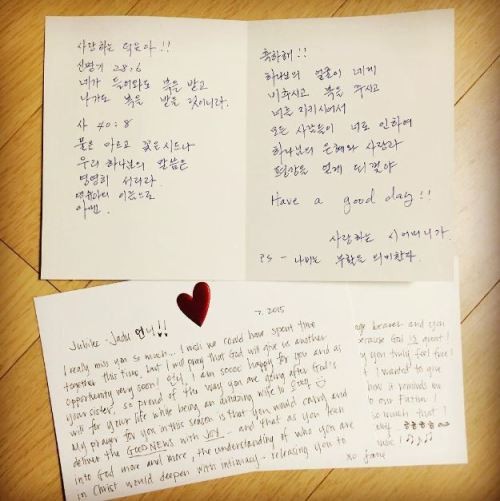 사랑하는 믿음아!!
신명기 28:6
네가 들어와도 복을 받고
나가도 복을 받을 것이니라.
사 40:8
풀은 마르고 꽃은 시드나
우리 하나님의 말씀은
영영히 서리라
이름으로
아멘.
축하해!!
하나님의 얼굴이 네게
비추시고 복을 주시고
너를 지키시어서
모든 사람들이 너로 인하여
하나님의 은혜와 사랑과
평강을 얻게 될꺼야
Have a good day!!
사랑하는 시어머니가.
PS - 나비는 부활을 의미한다.
7. 2015
Jubilee Jadu 언니!!
I really miss you so much... I wish we could have spent time
together this time, but I will pray that God will give us another
opportunity very soon! I am soooo happy for you and as
your sister, so proud of the way you are going after God's
will for your life while being an amazing wife to
My prayer for you in this season is that you would carry and
deliver the GOOD NEWS with JOY - and that as you lean
into God more and more, the understanding of who you are
in Christ would deepen with intimacy - releasing you to
braver and you
because God IS great!
you truly feel free!
I wanted to give
how it reminds me
to our Father!
so much that!
xo